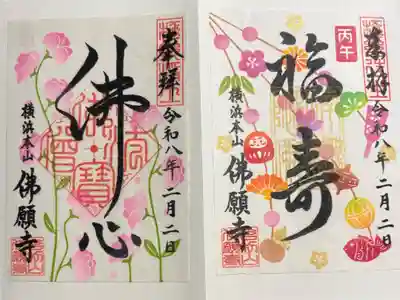 奉拝
令和八年二月二日
佛心
横浜本山
佛願寺
奉拝
丙午
令和八年二月二日
福寿
横浜本山
佛願寺